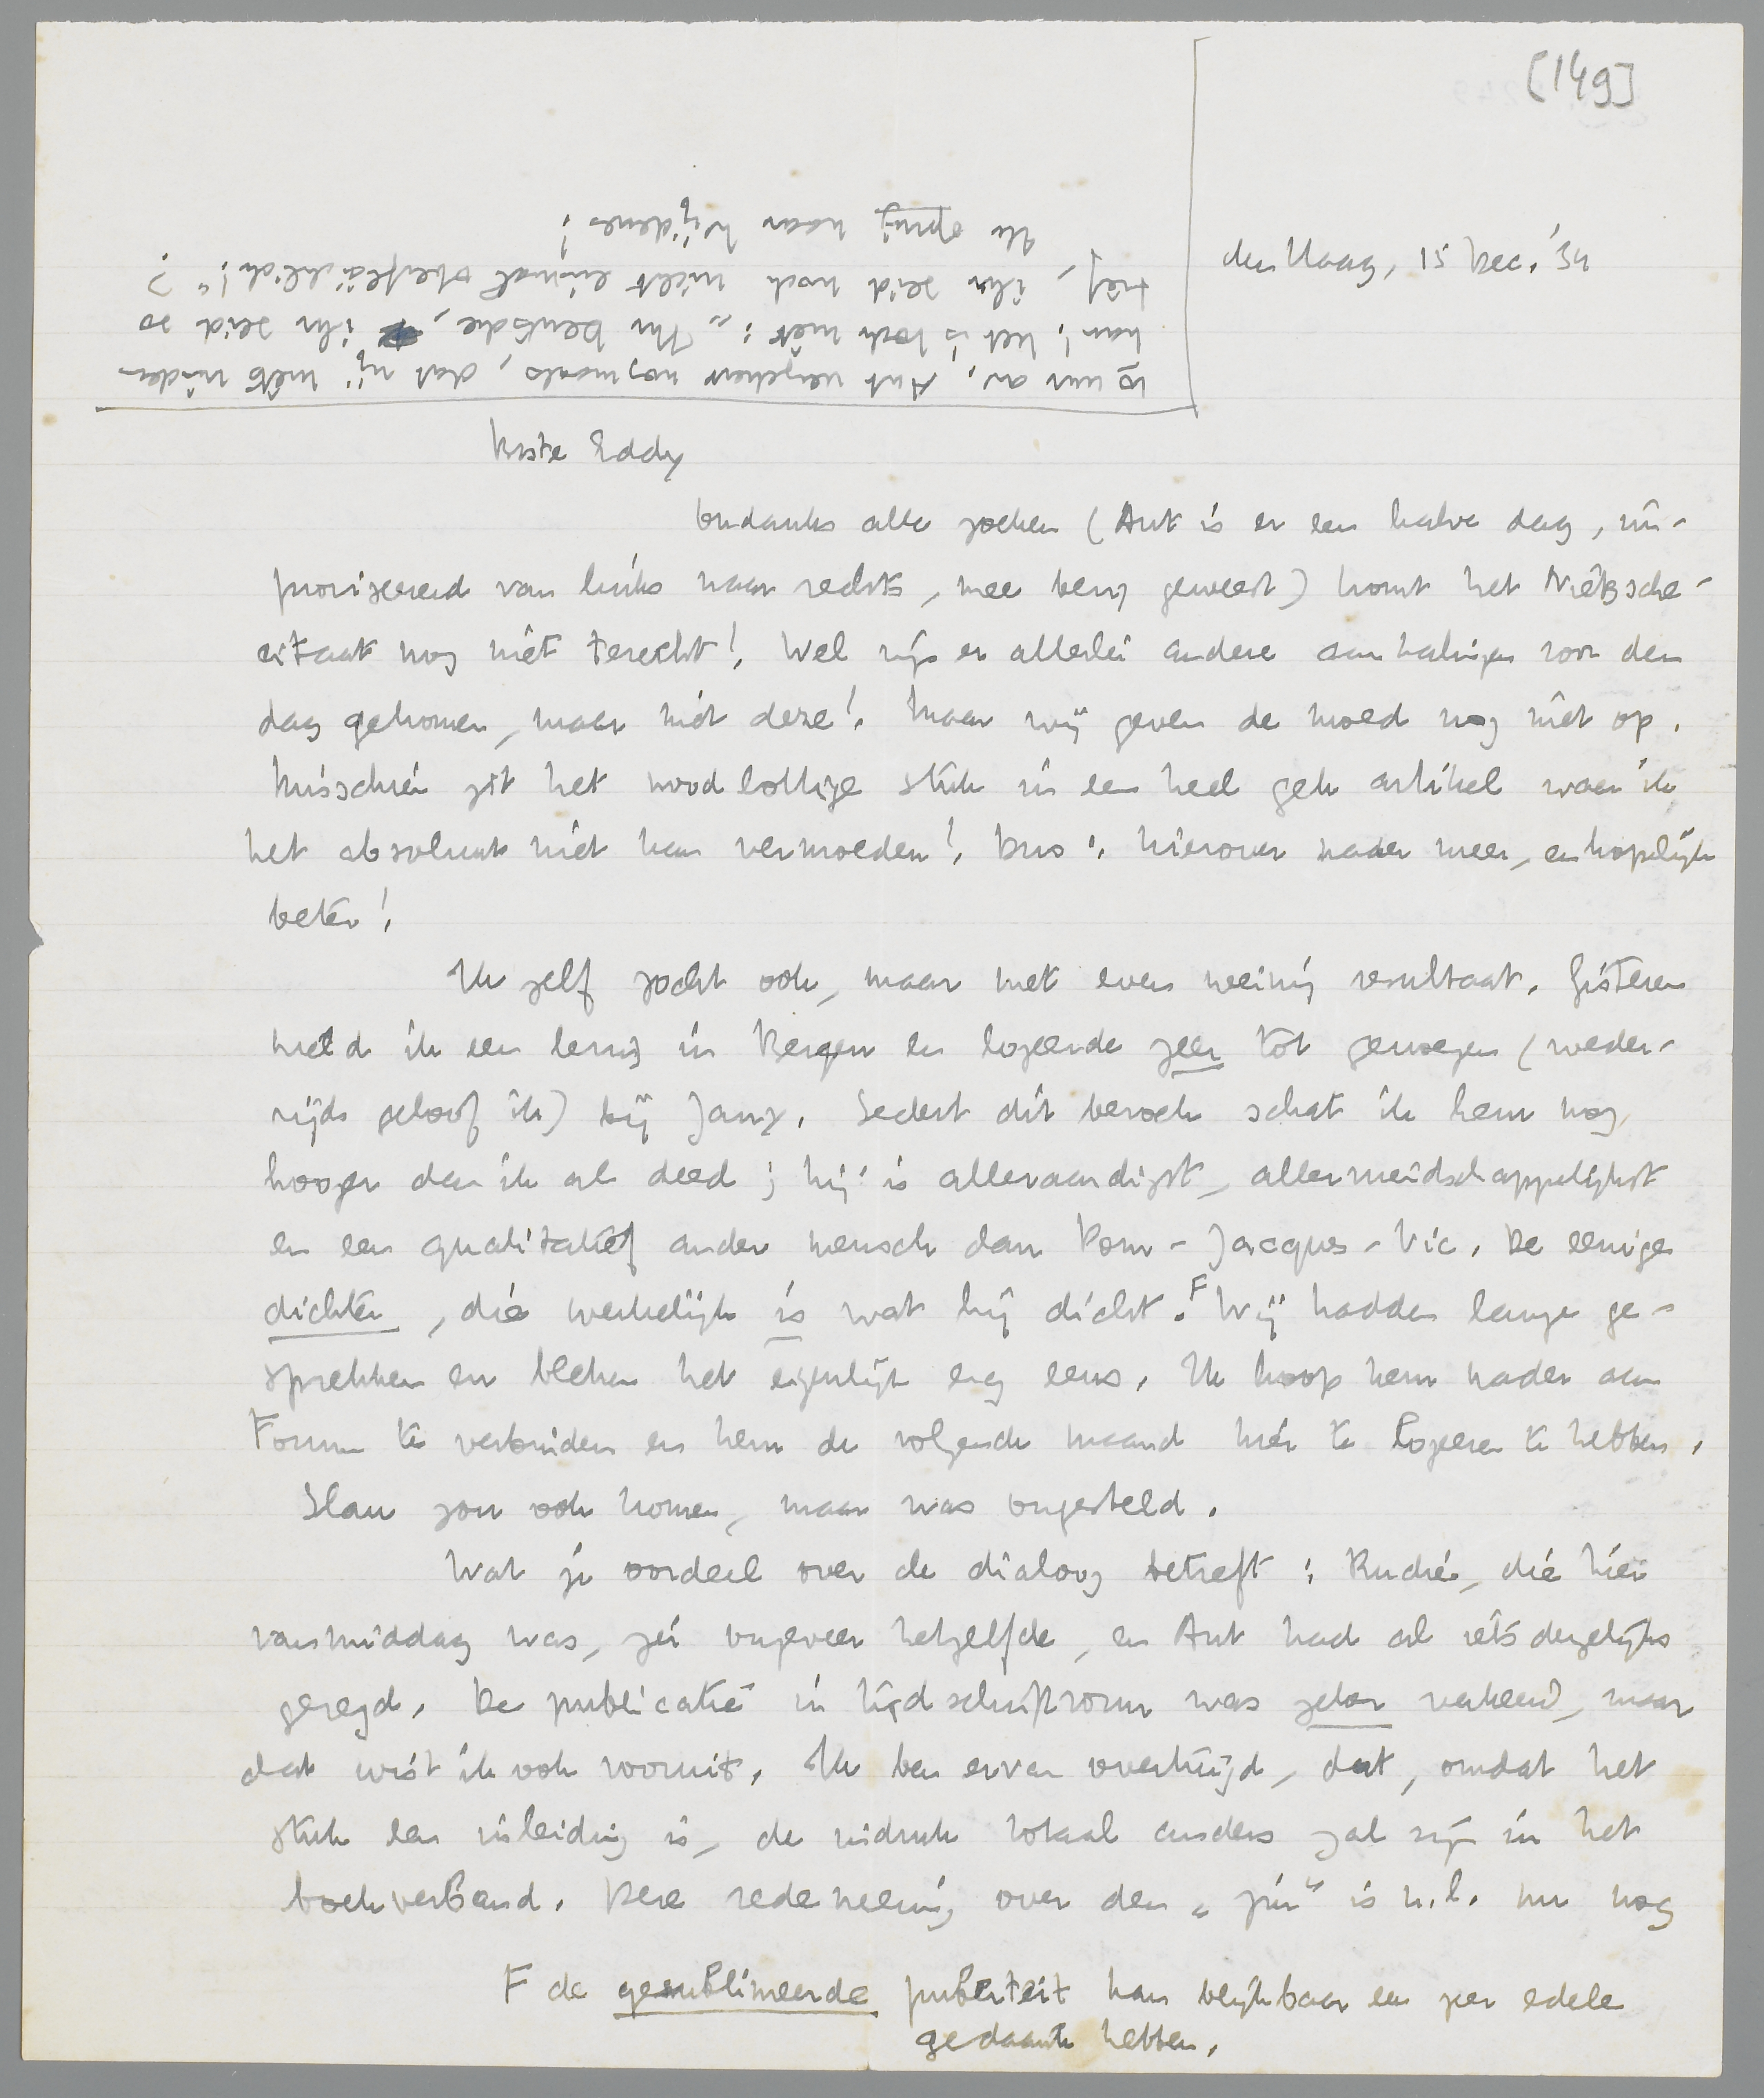 [149]
den Haag, 15 Dec. '34
10 uur av. Ant verzekert nogmaals, dat zij niets vinden
kan! Het is toch niet: „Ihr Deutsche, ihr seid so
tief, ihr seid noch nicht einmal oberflächlich!"?
Ik opinij naar Wijdenes!
Beste Eddy
Ondanks alle zoeken (Ant is er een halve dag, im-
proviseerend van links naar rechts, mee bezig geweest) komt het Nietzsche-
citaat nog niet terecht! Wel zijn er allerlei andere aanhalingen voor den
dag gekomen, maar niet deze! Maar wij geven de moed nog niet op.
Misschien zit het noodlottige stuk in een heel gek artikel waar ik
het absoluut niet kan vermoeden! Dus: hierover nader meer, en hopelijk
beter!
Ik zelf zocht ook, maar met even weinig resultaat. Gisteren
hield ik een lezing in Bergen en logeerde zeer tot genoegen (weder-
zijds geloof ik) bij Jany. Sedert dit bezoek schat ik hem nog
hooger dan ik al deed; hij is alleraardigst, allermenschappelijkst
en een qualitatief ander mensch dan Dom-Jacques-Vic. De eenige
dichter, die werkelijk is wat hij dicht. F Wij hadden lange ge-
sprekken en bleken het eigenlijk erg eens. Ik hoop hem nader aan
Forum te verbinden en hem de volgende maand hier te logeren te hebben.
Slau zou ook komen, maar was ongesteld.
Wat je oordeel over de dialoog betreft: Rudie, die hier
vanmiddag was, zei ongeveer hetzelfde, en Ant had al iets dergelijks
gezegd. De publicatie in tijdschriftvorm was zeker verkeerd, maar
dat wist ik ook vooruit. Ik ben ervan overtuigd, dat, omdat het
stuk een inleiding is, de indruk totaal anders zal zijn in het
boekverband. Deze redeneering over den „zin" is n.l. nu nog
F de gesublimeerde puberteit kan blijkbaar een zeer edele
gedaante hebben.